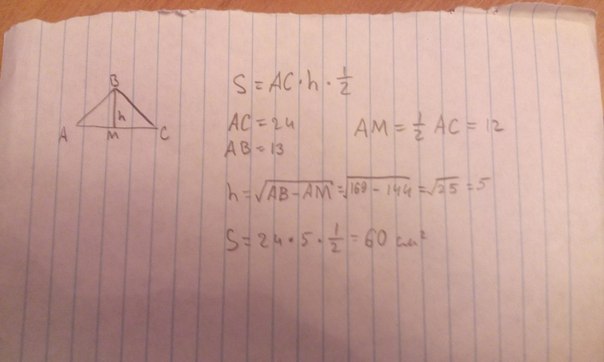 B
h
A M C
S = AC · h · 1/2
AC = 24
AM = 1/2 AC = 12
AB = 13
h = √(AB - AM) = √(169 - 144) = √25 = 5
S = 24 · 5 · 1/2 = 60 см²